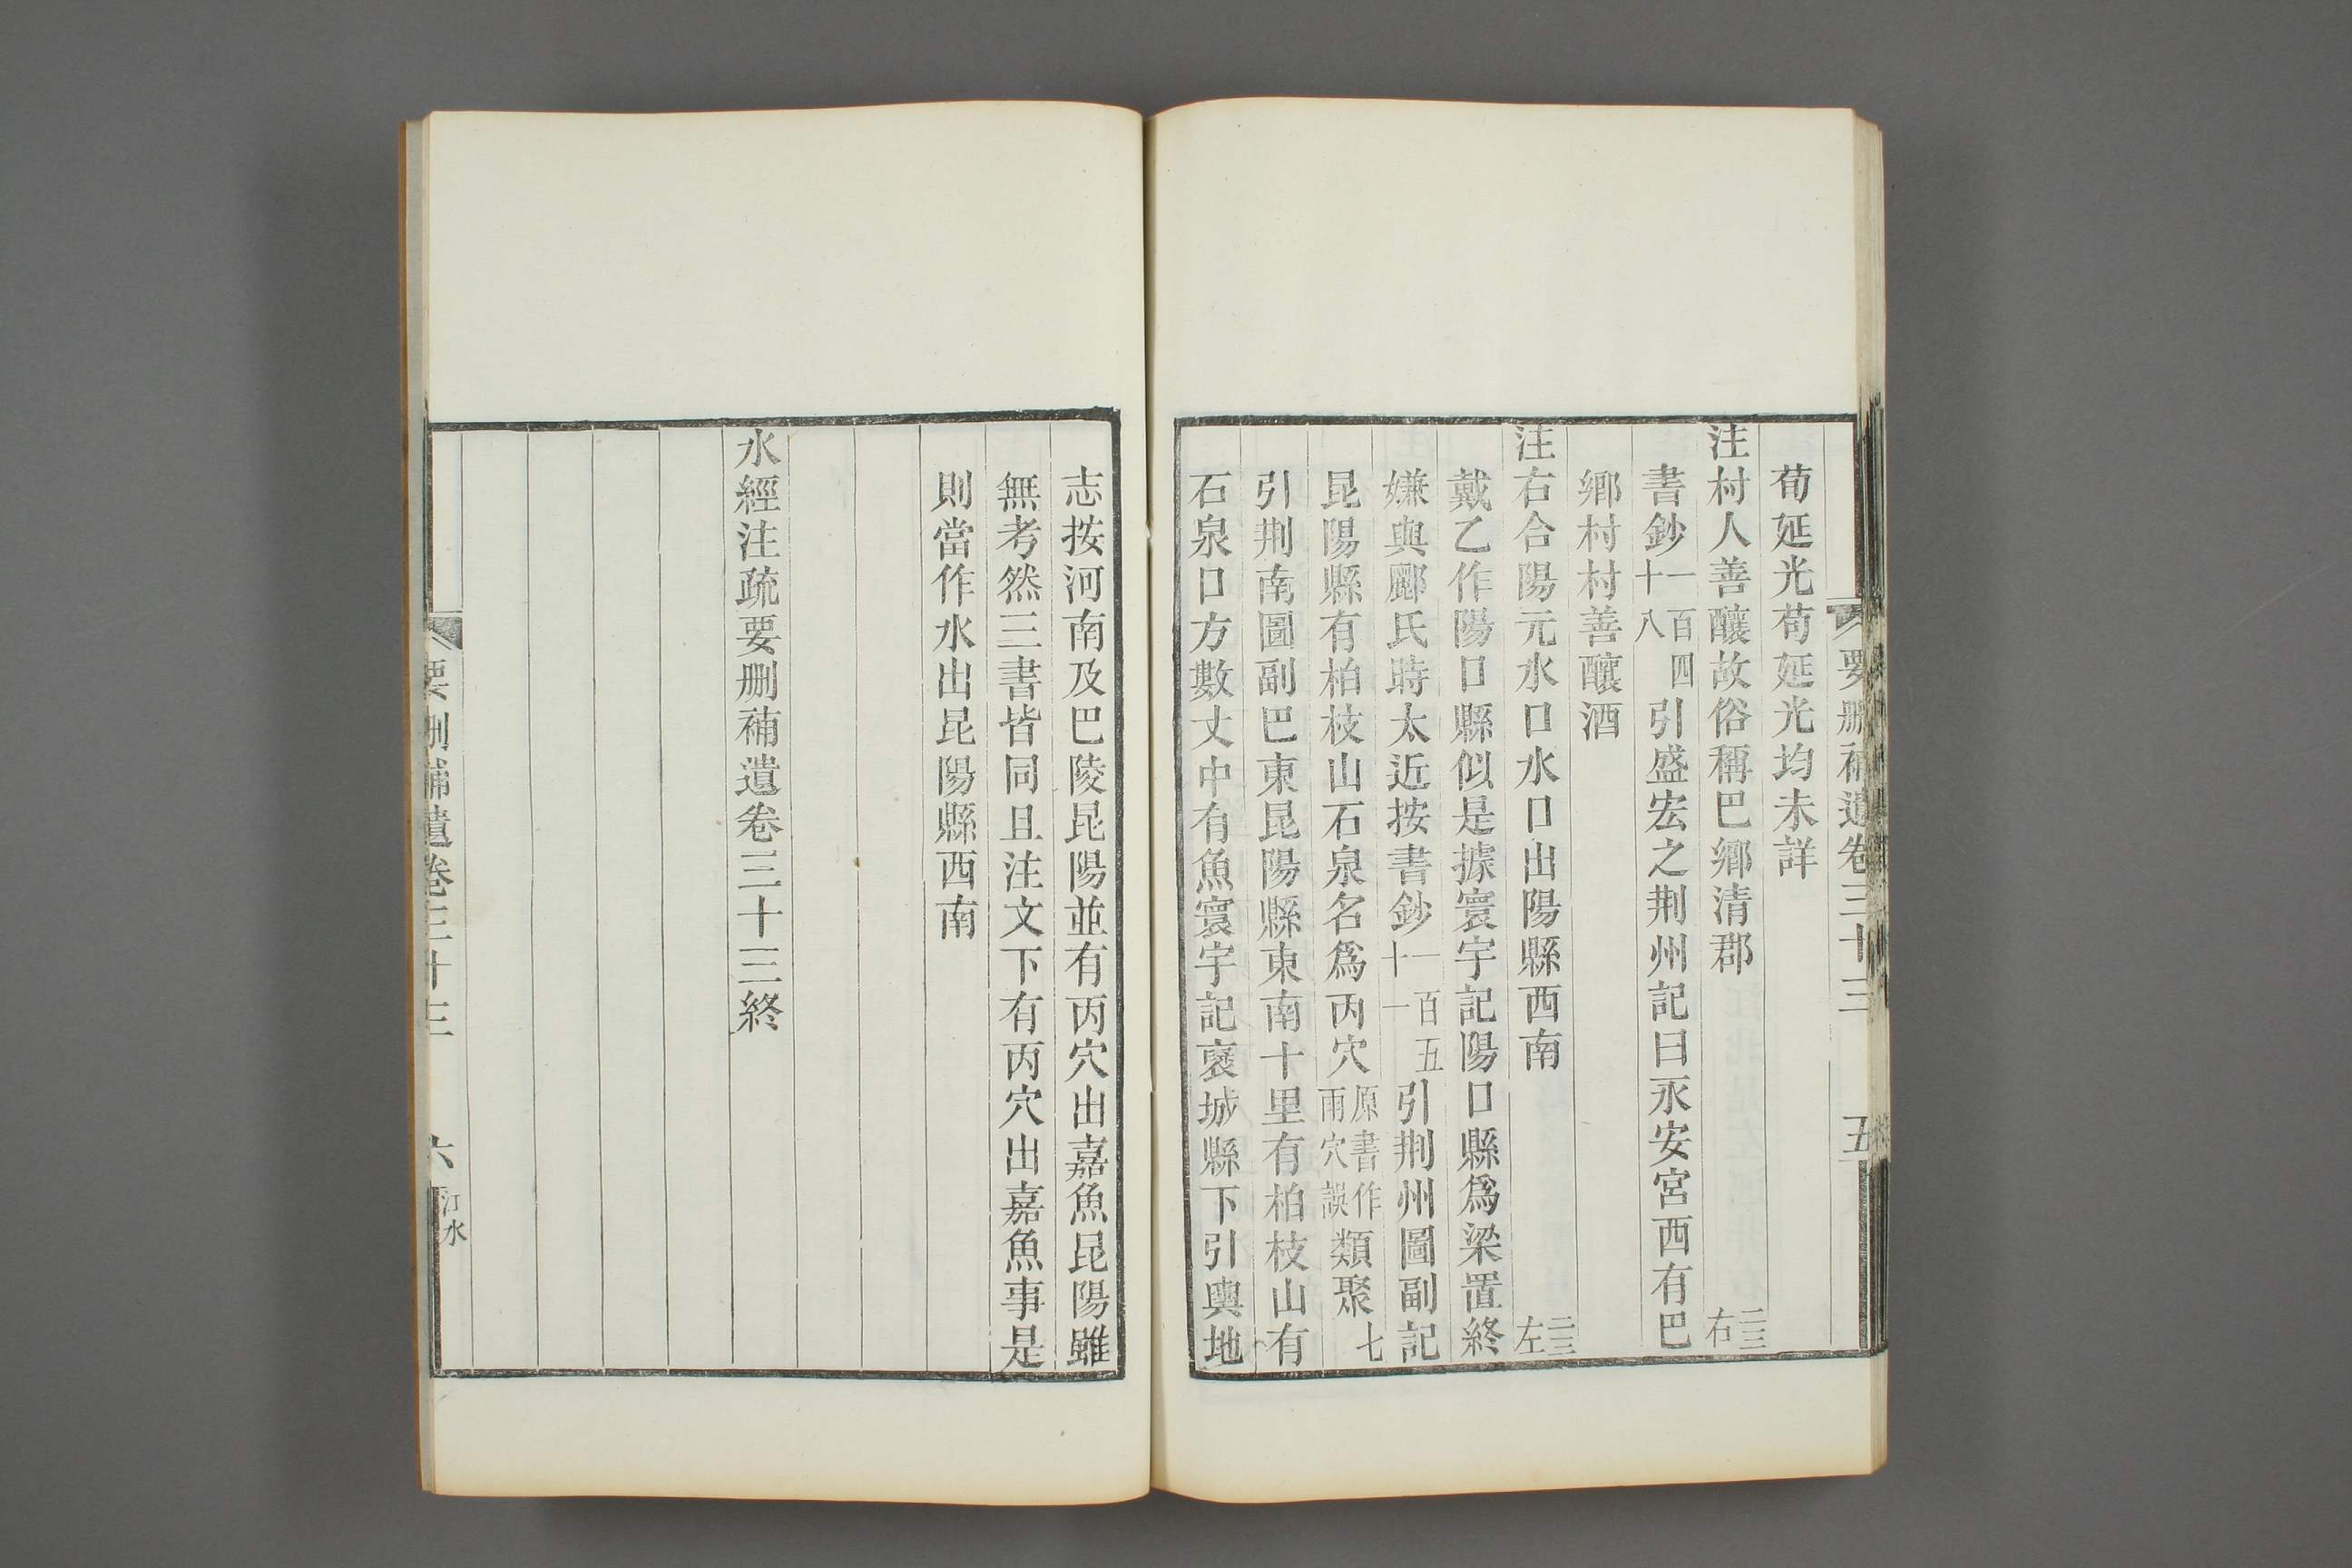 要刪補遺卷三十三 五
荀延光苟延光均未詳
注村人善釀故俗稱巴鄉清郡 二三右
書鈔一百四十八引盛宏之荆州記曰永安宮西有巴
鄉村村善釀酒
注右合陽元水口水口出陽縣西南 二三左
戴乙作陽口縣似是據寰宇記陽口縣爲梁置終
嫌與酈氏時太近按書鈔一百五十一引荆州圖副記
昆陽縣有柏枝山石泉名爲丙穴原書作雨穴誤類聚七
引荆南圖副巴東昆陽縣東南十里有柏枝山有
石泉口方數丈中有魚寰宇記襃城縣下引輿地
志按河南及巴陵昆陽並有丙穴出嘉魚昆陽雖
無考然三書皆同且注文下有丙穴出嘉魚事是
則當作水出昆陽縣西南
水經注疏要刪補遺卷三十三終
要刪補遺卷三十三 六 江水